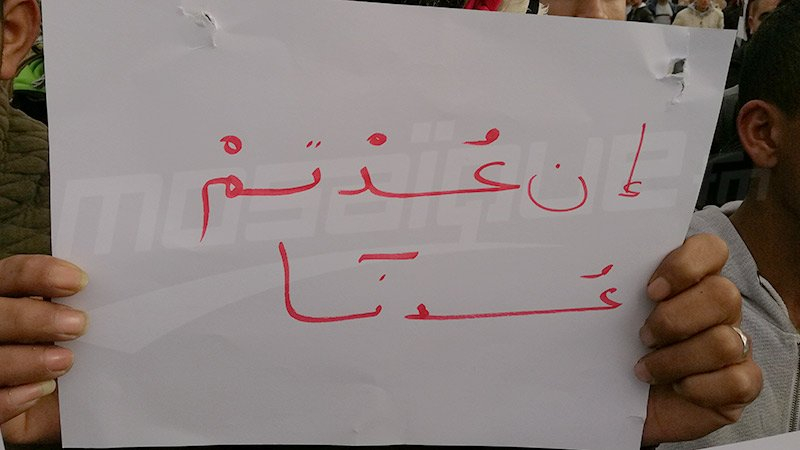 إن عُدْتمْ
عُدنَا
mosaïque fm